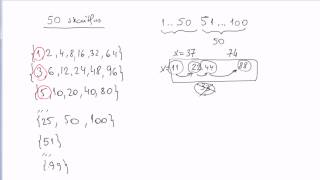 50
{1 2, 4, 8, 16, 32, 64}
{3 6, 12, 24, 48, 96}
{5 10, 20, 40, 80}
{25, 50, 100}
{51}
{99}
1 .. 50 51 ... 100
50
x=37 74
x=11 22 44 88